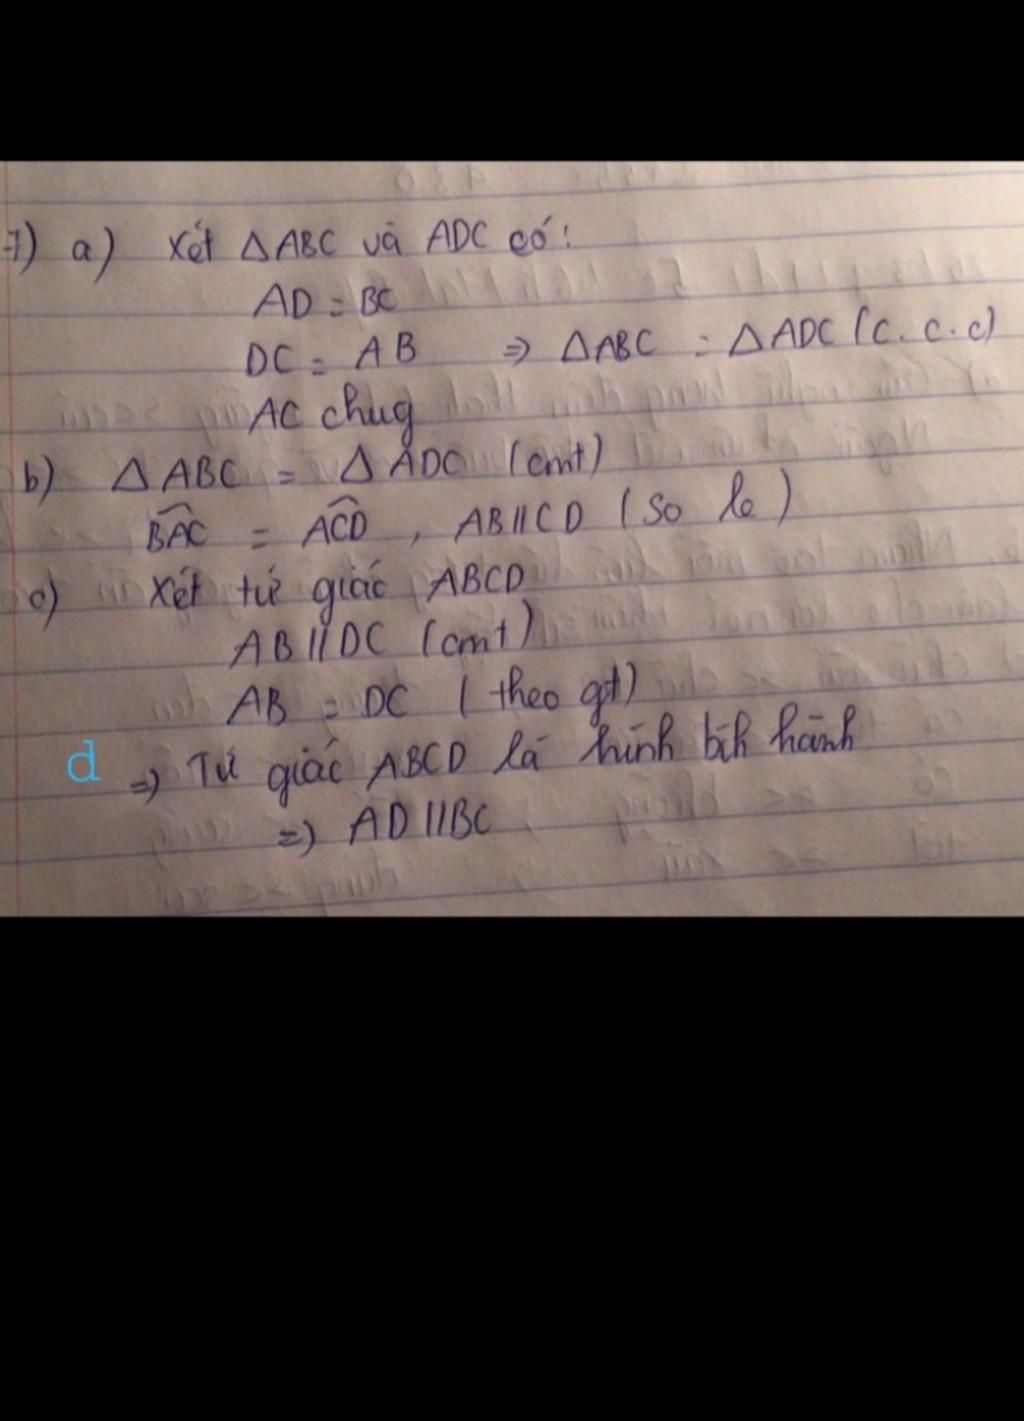 7) a) Xét △ABC và ADC có:
AD = BC
DC = AB ⇒ △ABC = △ADC (c.c.c)
AC chug
b) △ABC = △ADC (cmt)
BAC = ACD, AB//CD (so le)
c) Xét tứ giác ABCD
AB//DC (cmt)
AB = DC (theo gt)
d ⇒ Tứ giác ABCD là hình bìh hành
⇒ AD//BC